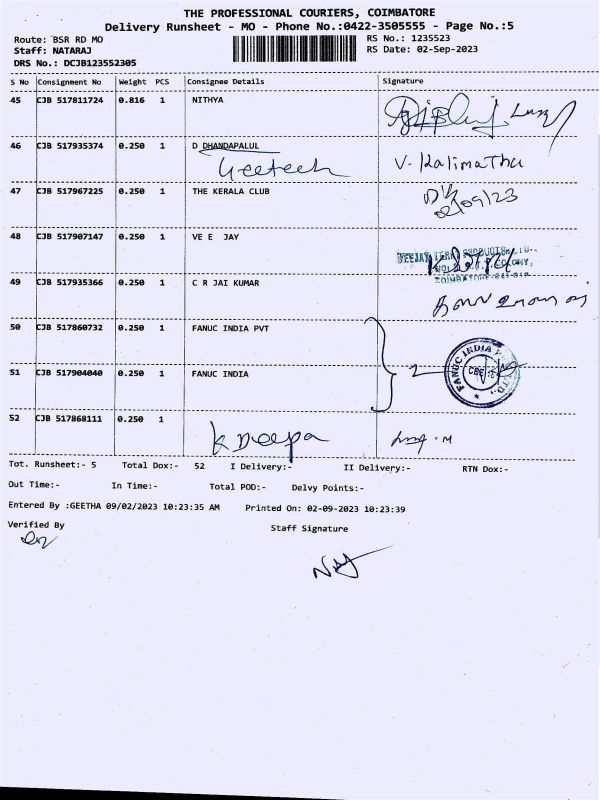 THE PROFESSIONAL COURIERS, COIMBATORE
Delivery Runsheet - MO - Phone No.:0422-3505555 - Page No.:5
Route: BSR RD MO
RS No.: 1235523
Staff: NATARAJ
RS Date: 02-Sep-2023
DRS No.: DCJB123552305
S No Consignment No Weight PCS Consignee Details Signature
45 CJB 517811724 0.816 1 NITHYA
46 CJB 517935374 0.250 1 D DHANDAPALUL
Geeteech V. Kalimathu
47 CJB 517967225 0.250 1 THE KERALA CLUB
02/09/23
48 CJB 517907147 0.250 1 VE E JAY
49 CJB 517935366 0.250 1 C R JAI KUMAR
50 CJB 517860732 0.250 1 FANUC INDIA PVT
FANUC INDIA P LTD.
CBE
51 CJB 517904040 0.250 1 FANUC INDIA
52 CJB 517868111 0.250 1
K Deepa
Tot. Runsheet:- 5 Total Dox:- 52 I Delivery:- II Delivery:- RTN Dox:-
Out Time:- In Time:- Total POD:- Delvy Points:-
Entered By :GEETHA 09/02/2023 10:23:35 AM Printed On: 02-09-2023 10:23:39
Verified By Staff Signature